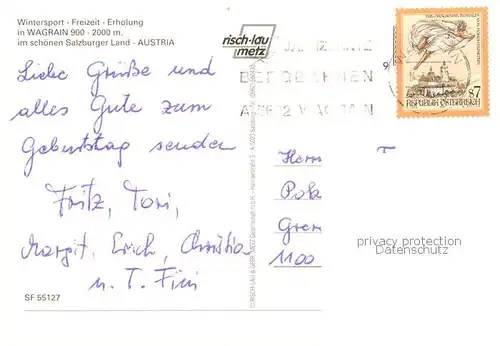 Wintersport - Freizeit - Erholung
in WAGRAIN 900 - 2000 m,
im schönen Salzburger Land - AUSTRIA
risch-lau
metz
BERGBAHNEN
A-5602 WAGRAIN
REPUBLIK ÖSTERREICH
S7
Liebe Grüße und
alles Gute zum
Geburtstag senden
Fritz, Toni,
Margit, Erich, Christia
u. T. Fini
Herrn
Pok
Gren
1100
privacy protection
Datenschutz
SF 55127